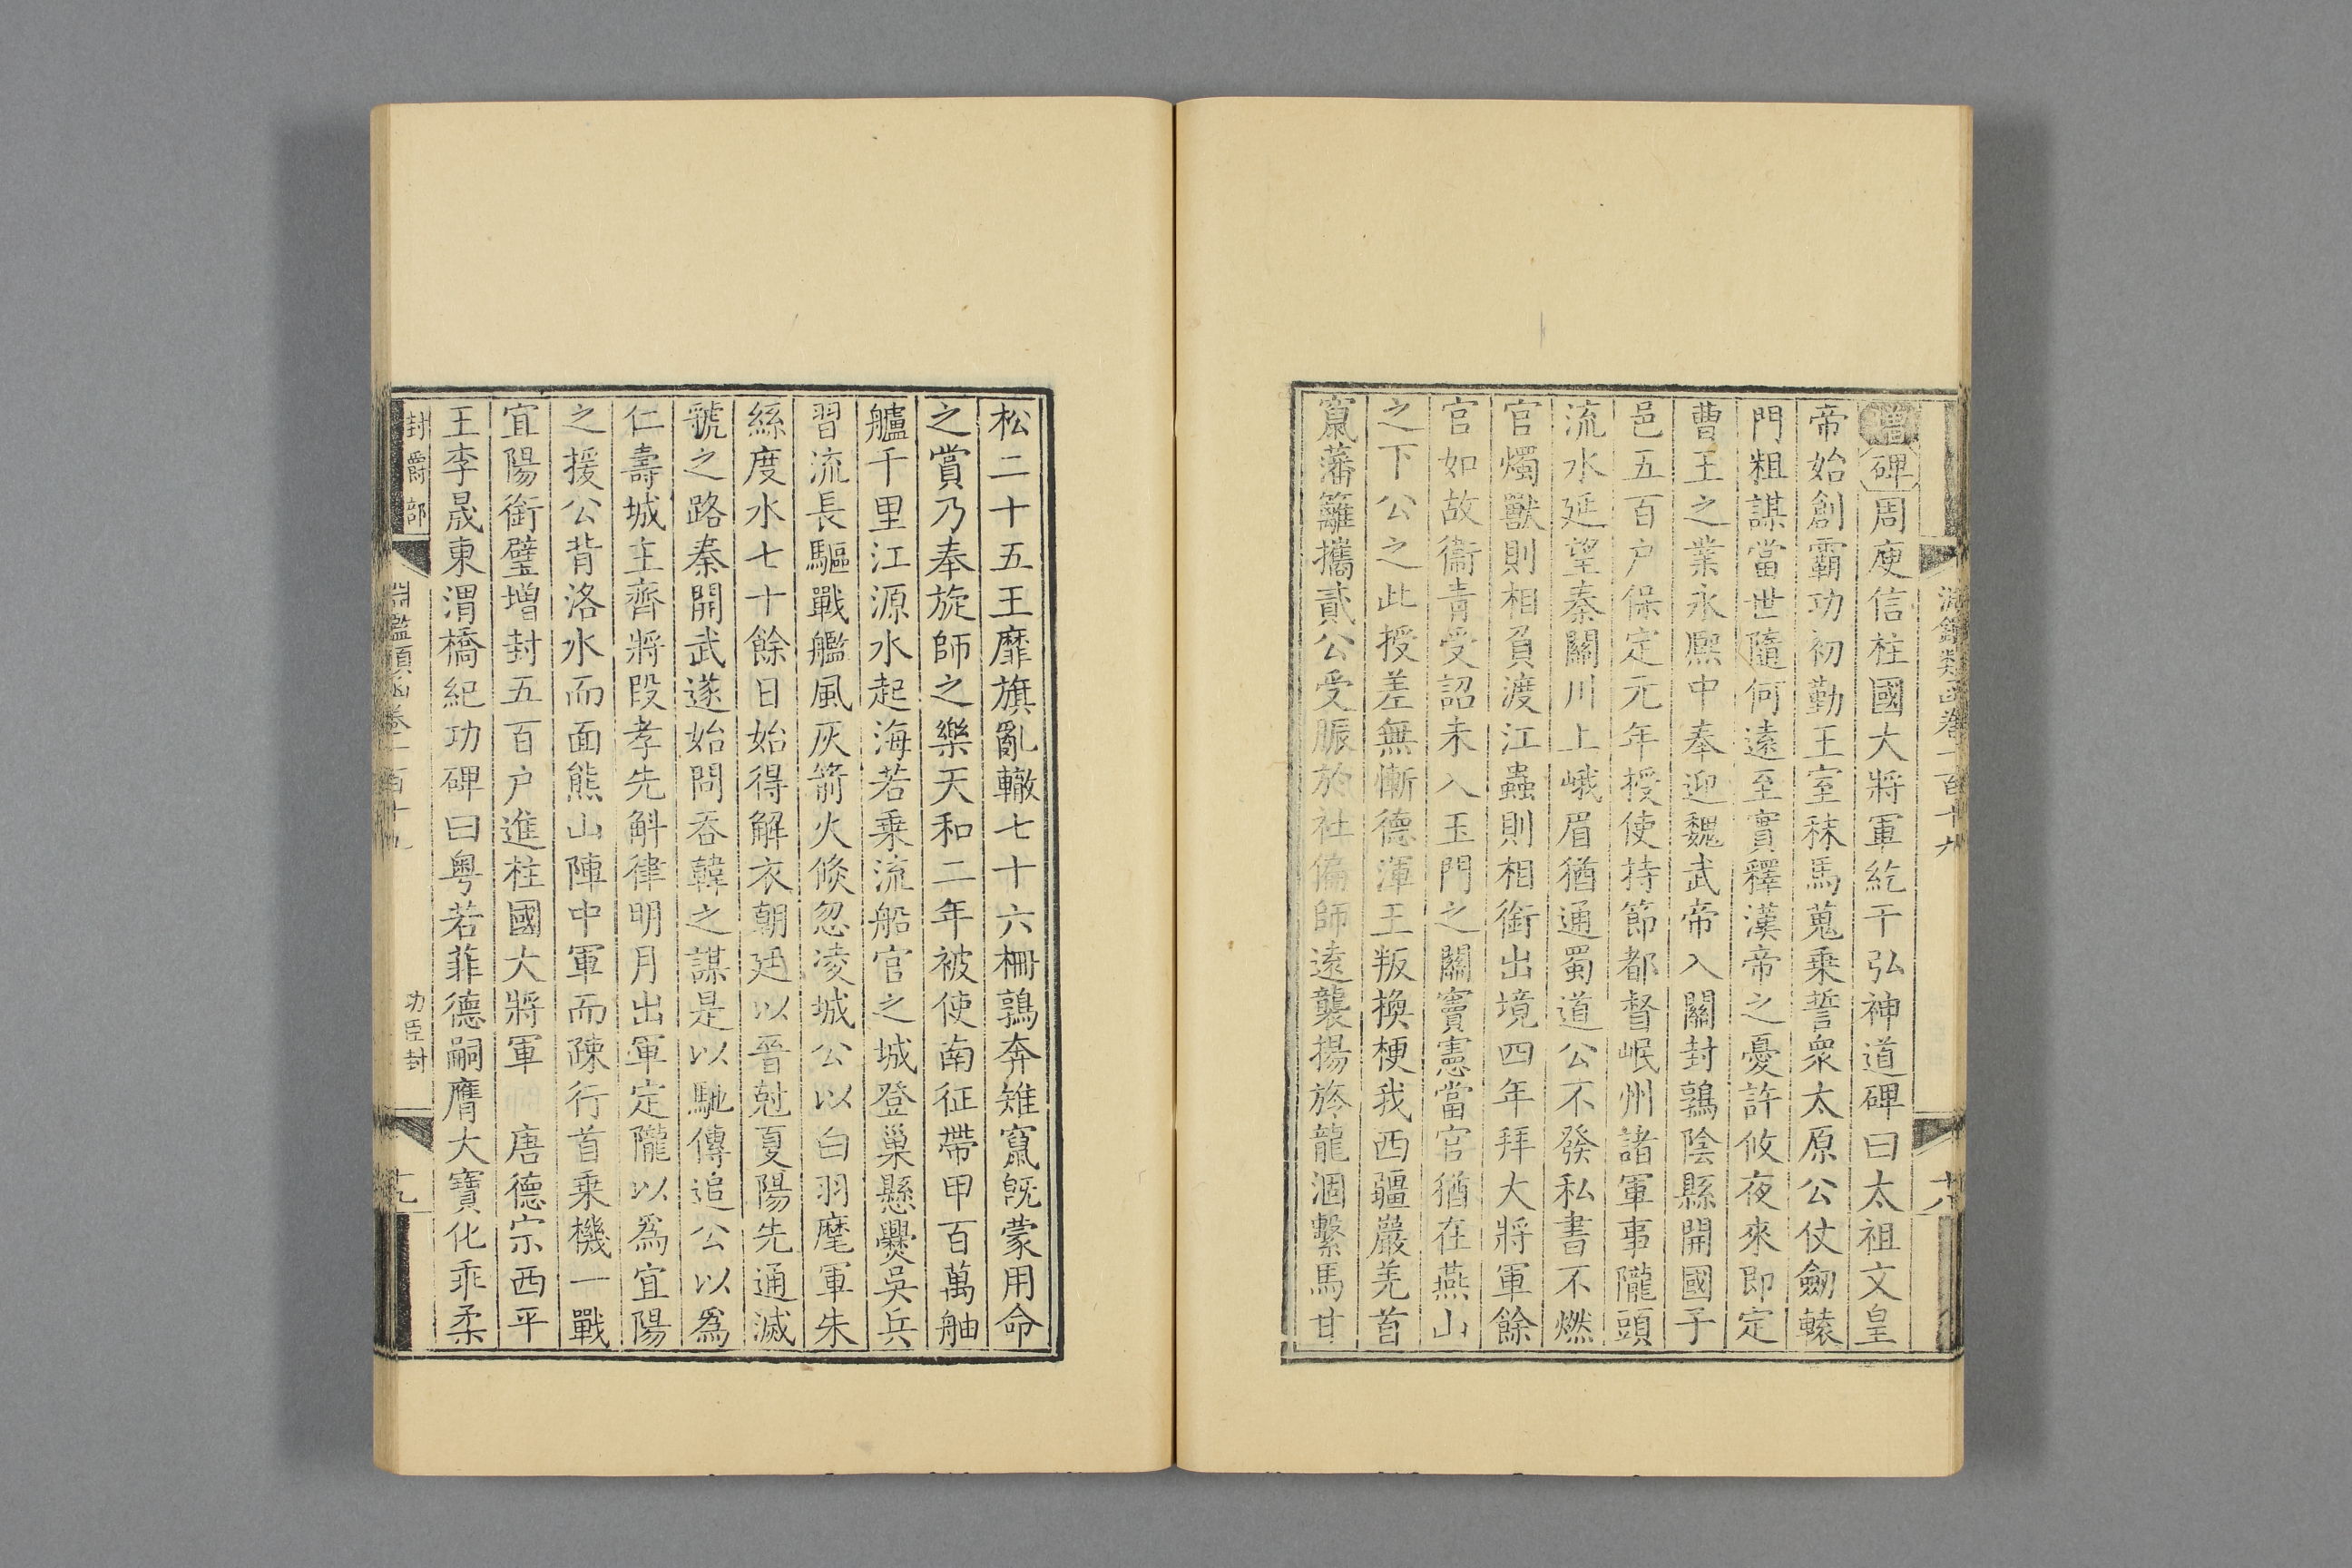 淵鑑類函卷一百十九
十八
增碑周庾信柱國大將軍紇干弘神道碑曰太祖文皇
帝始創霸功初勤王室秣馬蒐乗誓衆太原公仗劒轅
門粗謀當世隨何遠至實釋漢帝之憂許攸夜來即定
曹王之業永熙中奉迎魏武帝入關封鶉陰縣開國子
邑五百户保定元年授使持節都督岷州諸軍事隴頭
流水延望秦關川上峨眉猶通蜀道公不發私書不燃
官燭獸則相負渡江蟲則相銜出境四年拜大將軍餘
官如故衞青受詔未入玉門之關竇憲當官猶在燕山
之下公之此授差無慚德渾王叛換梗我西疆巖羌首
竄藩籬攜貳公受脤於社偏師遠襲揚旍龍涸繫馬甘
松二十五王靡旗亂轍七十六柵鶉奔雉竄旣蒙用命
之賞乃奉旋師之樂天和二年被使南征帶甲百萬舳
艫千里江源水起海若乗流船官之城登巢懸㸑吳兵
習流長驅戰艦風灰箭火倐忽凌城公以白羽麾軍朱
絲度水七十餘日始得解衣朝廷以晉尅夏陽先通滅
虢之路秦開武遂始問吞韓之謀是以馳傳追公以爲
仁壽城主齊將段孝先斛律明月出軍定隴以爲宜陽
之援公背洛水而面熊山陣中軍而疎行首乗機一戰
宜陽銜璧增封五百户進柱國大將軍 唐德宗西平
王李晟東渭橋紀功碑曰粤若菲德嗣膺大寶化乖柔
封爵部
淵鑑類函卷一百十九
功臣封
十九